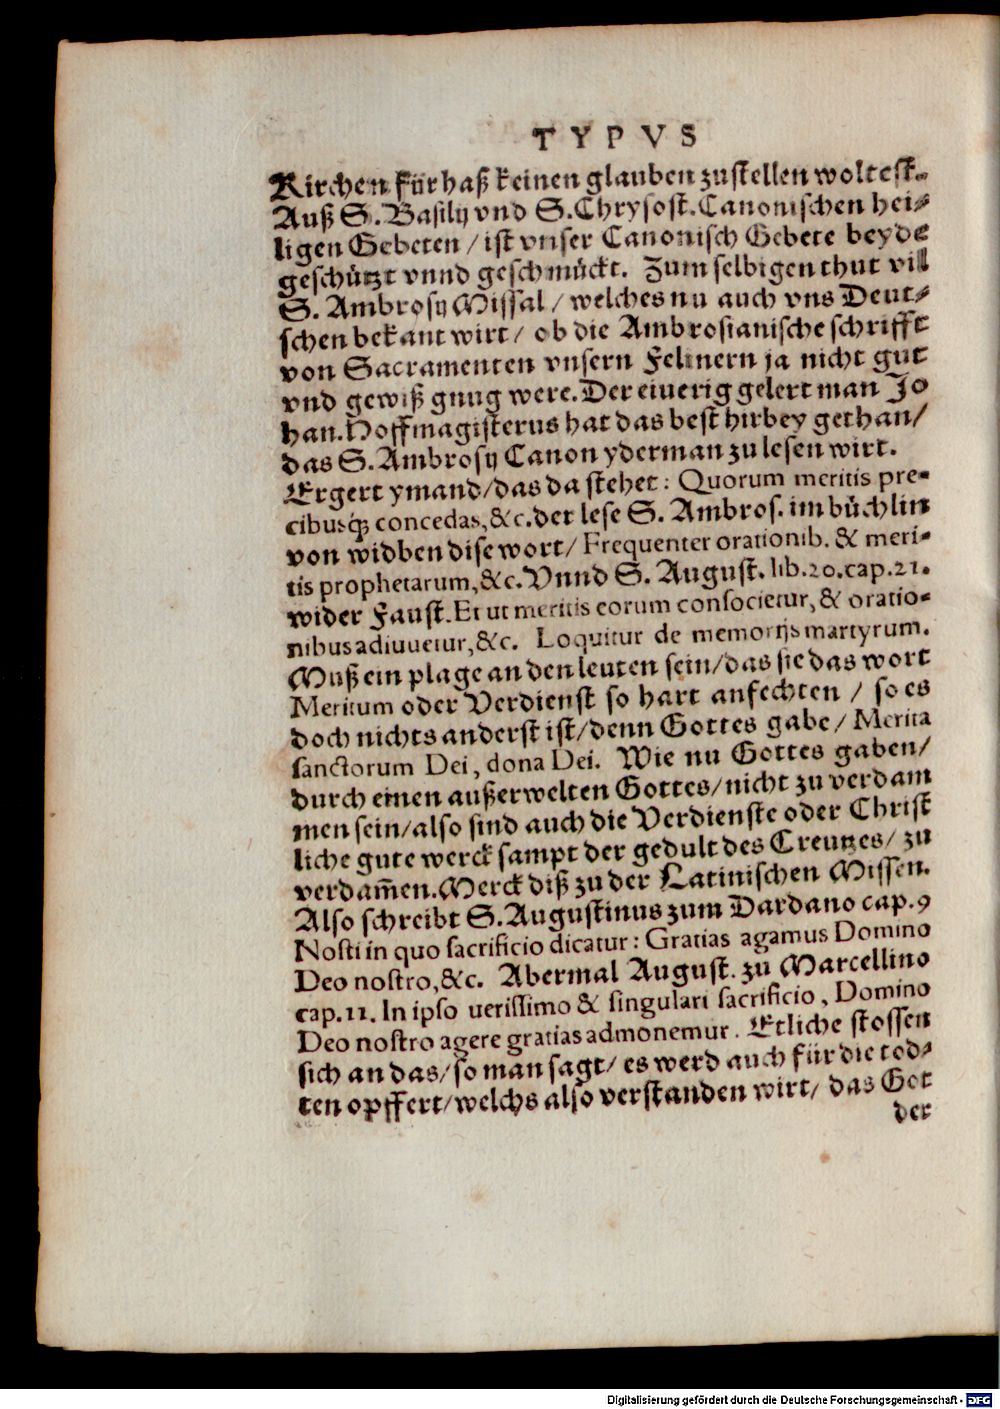 TYPVS
Kirchen für haß keinen glauben zustellen woltest.
Auß S. Basilij vnd S. Chrysost. Canonischen hei⸗
ligen Gebeten / ist vnser Canonisch Gebete beyde
geschützt vnnd geschmückt. Zum selbigen thut vil
S. Ambrosij Missal / welches nu auch vns Deut⸗
schen bekant wirt / ob die Ambrosianische schrifft
von Sacramenten vnsern Felinern ja nicht gut
vnd gewiß gnug were. Der eiuerig gelert man Jo
han. Hoffmagisterus hat das best hirbey gethan /
das S. Ambrosij Canon yderman zu lesen wirt.
Ergert ymand / das da stehet : Quorum meritis pre-
cibusq́; concedas, &c. der lese S. Ambros. im büchlin
von widben dise wort / Frequenter orationib. & meri-
tis prophetarum, &c. Vnnd S. August. lib. 20. cap. 21.
wider Faust. Et ut meritis eorum consocietur, & oratio-
nibus adiuuetur, &c. Loquitur de memorijs martyrum.
Muß ein plage an den leuten sein / das sie das wort
Meritum oder Verdienst so hart anfechten / so es
doch nichts anderst ist / denn Gottes gabe / Merita
sanctorum Dei, dona Dei. Wie nu Gottes gaben /
durch einen außerwelten Gottes / nicht zu verdam
men sein / also sind auch die Verdienste oder Christ
liche gute werck sampt der gedult des Creutzes / zu
verdam̃en. Merck diß zu der Latinischen Missen.
Also schreibt S. Augustinus zum Dardano cap. 9
Nosti in quo sacrificio dicatur : Gratias agamus Domino
Deo nostro, &c. Abermal August. zu Marcellino
cap. 11. In ipso uerissimo & singulari sacrificio, Domino
Deo nostro agere gratias admonemur. Etliche stossen
sich an das / so man sagt / es werd auch für die tod⸗
ten opffert / welchs also verstanden wirt / das Got
der
Digitalisierung gefördert durch die Deutsche Forschungsgemeinschaft - DFG